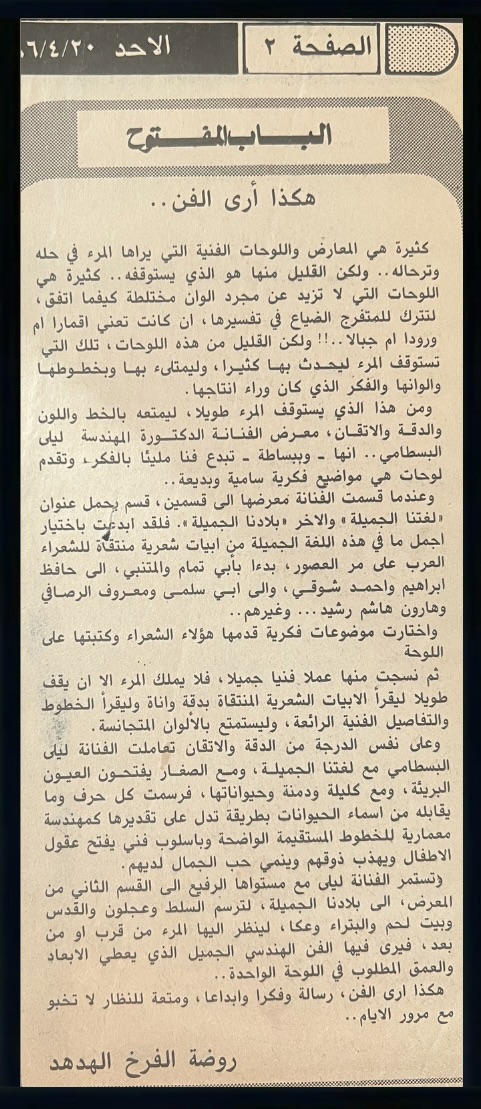 الصفحة ٢
الاحد ٦/٤/٢٠
الباب المفتوح
هكذا أرى الفن..
كثيرة هي المعارض واللوحات الفنية التي يراها المرء في حله
وترحاله.. ولكن القليل منها هو الذي يستوقفه.. كثيرة هي
اللوحات التي لا تزيد عن مجرد الوان مختلطة كيفما اتفق،
لتترك للمتفرج الضياع في تفسيرها، ان كانت تعني اقمارا ام
ورودا ام جبالا..!! ولكن القليل من هذه اللوحات، تلك التي
تستوقف المرء ليحدث بها كثيرا، وليمتلىء بها وبخطوطها
والوانها والفكر الذي كان وراء انتاجها.
ومن هذا الذي يستوقف المرء طويلا، ليمتعه بالخط واللون
والدقة والاتقان، معرض الفنانة الدكتورة المهندسة ليلى
البسطامي.. انها - وببساطة - تبدع فنا مليئا بالفكر، وتقدم
لوحات هي مواضيع فكرية سامية وبديعة..
وعندما قسمت الفنانة معرضها الى قسمين، قسم يحمل عنوان
«لغتنا الجميلة» والاخر «بلادنا الجميلة». فلقد ابدعت باختيار
اجمل ما في هذه اللغة الجميلة من ابيات شعرية منتقاة للشعراء
العرب على مر العصور، بدءا بأبي تمام والمتنبي، الى حافظ
ابراهيم واحمد شوقي، والى ابي سلمى ومعروف الرصافي
وهارون هاشم رشيد... وغيرهم..
واختارت موضوعات فكرية قدمها هؤلاء الشعراء وكتبتها على
اللوحة
ثم نسجت منها عملا فنيا جميلا، فلا يملك المرء الا ان يقف
طويلا ليقرأ الابيات الشعرية المنتقاة بدقة واناة وليقرأ الخطوط
والتفاصيل الفنية الرائعة، وليستمتع بالألوان المتجانسة.
وعلى نفس الدرجة من الدقة والاتقان تعاملت الفنانة ليلى
البسطامي مع لغتنا الجميلة، ومع الصغار يفتحون العيون
البريئة، ومع كليلة ودمنة وحيواناتها، فرسمت كل حرف وما
يقابله من اسماء الحيوانات بطريقة تدل على تقديرها كمهندسة
معمارية للخطوط المستقيمة الواضحة وباسلوب فني يفتح عقول
الاطفال ويهذب ذوقهم وينمي حب الجمال لديهم.
وتستمر الفنانة ليلى مع مستواها الرفيع الى القسم الثاني من
المعرض، الى بلادنا الجميلة، لترسم السلط وعجلون والقدس
وبيت لحم والبتراء وعكا، لينظر اليها المرء من قرب او من
بعد، فيرى فيها الفن الهندسي الجميل الذي يعطي الابعاد
والعمق المطلوب في اللوحة الواحدة..
هكذا ارى الفن، رسالة وفكرا وابداعا، ومتعة للنظار لا تخبو
مع مرور الايام..
روضة الفرخ الهدهد